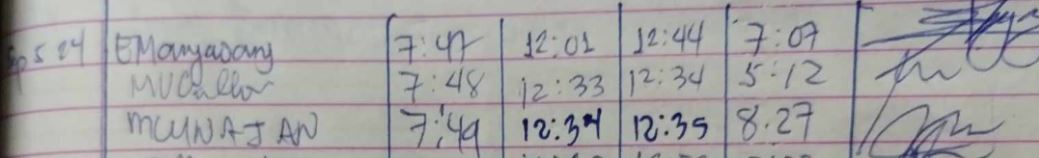 5 24 EManyasany 7:47 12:01 12:44 7:07
7:48 12:33 12:34 5:12
MCUNAJAN 7:49 12:34 12:35 8.27